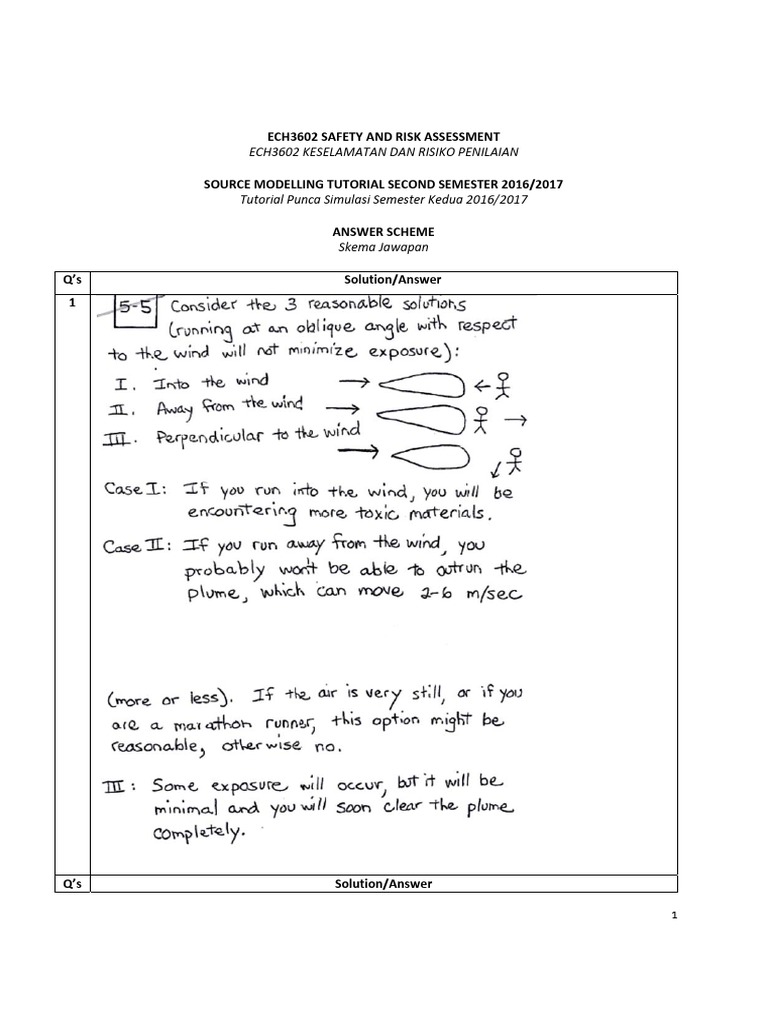 ECH3602 SAFETY AND RISK ASSESSMENT
ECH3602 KESELAMATAN DAN RISIKO PENILAIAN
SOURCE MODELLING TUTORIAL SECOND SEMESTER 2016/2017
Tutorial Punca Simulasi Semester Kedua 2016/2017
ANSWER SCHEME
Skema Jawapan
Q's Solution/Answer
1 5-5 Consider the 3 reasonable solutions
(running at an oblique angle with respect
to the wind will not minimize exposure):
I. Into the wind
II. Away from the wind
III. Perpendicular to the wind
Case I: If you run into the wind, you will be
encountering more toxic materials.
Case II: If you run away from the wind, you
probably won't be able to outrun the
plume, which can move 2-6 m/sec
(more or less). If the air is very still, or if you
are a marathon runner, this option might be
reasonable, otherwise no.
III: Some exposure will occur, but it will be
minimal and you will soon clear the plume
completely.
Q's Solution/Answer
1